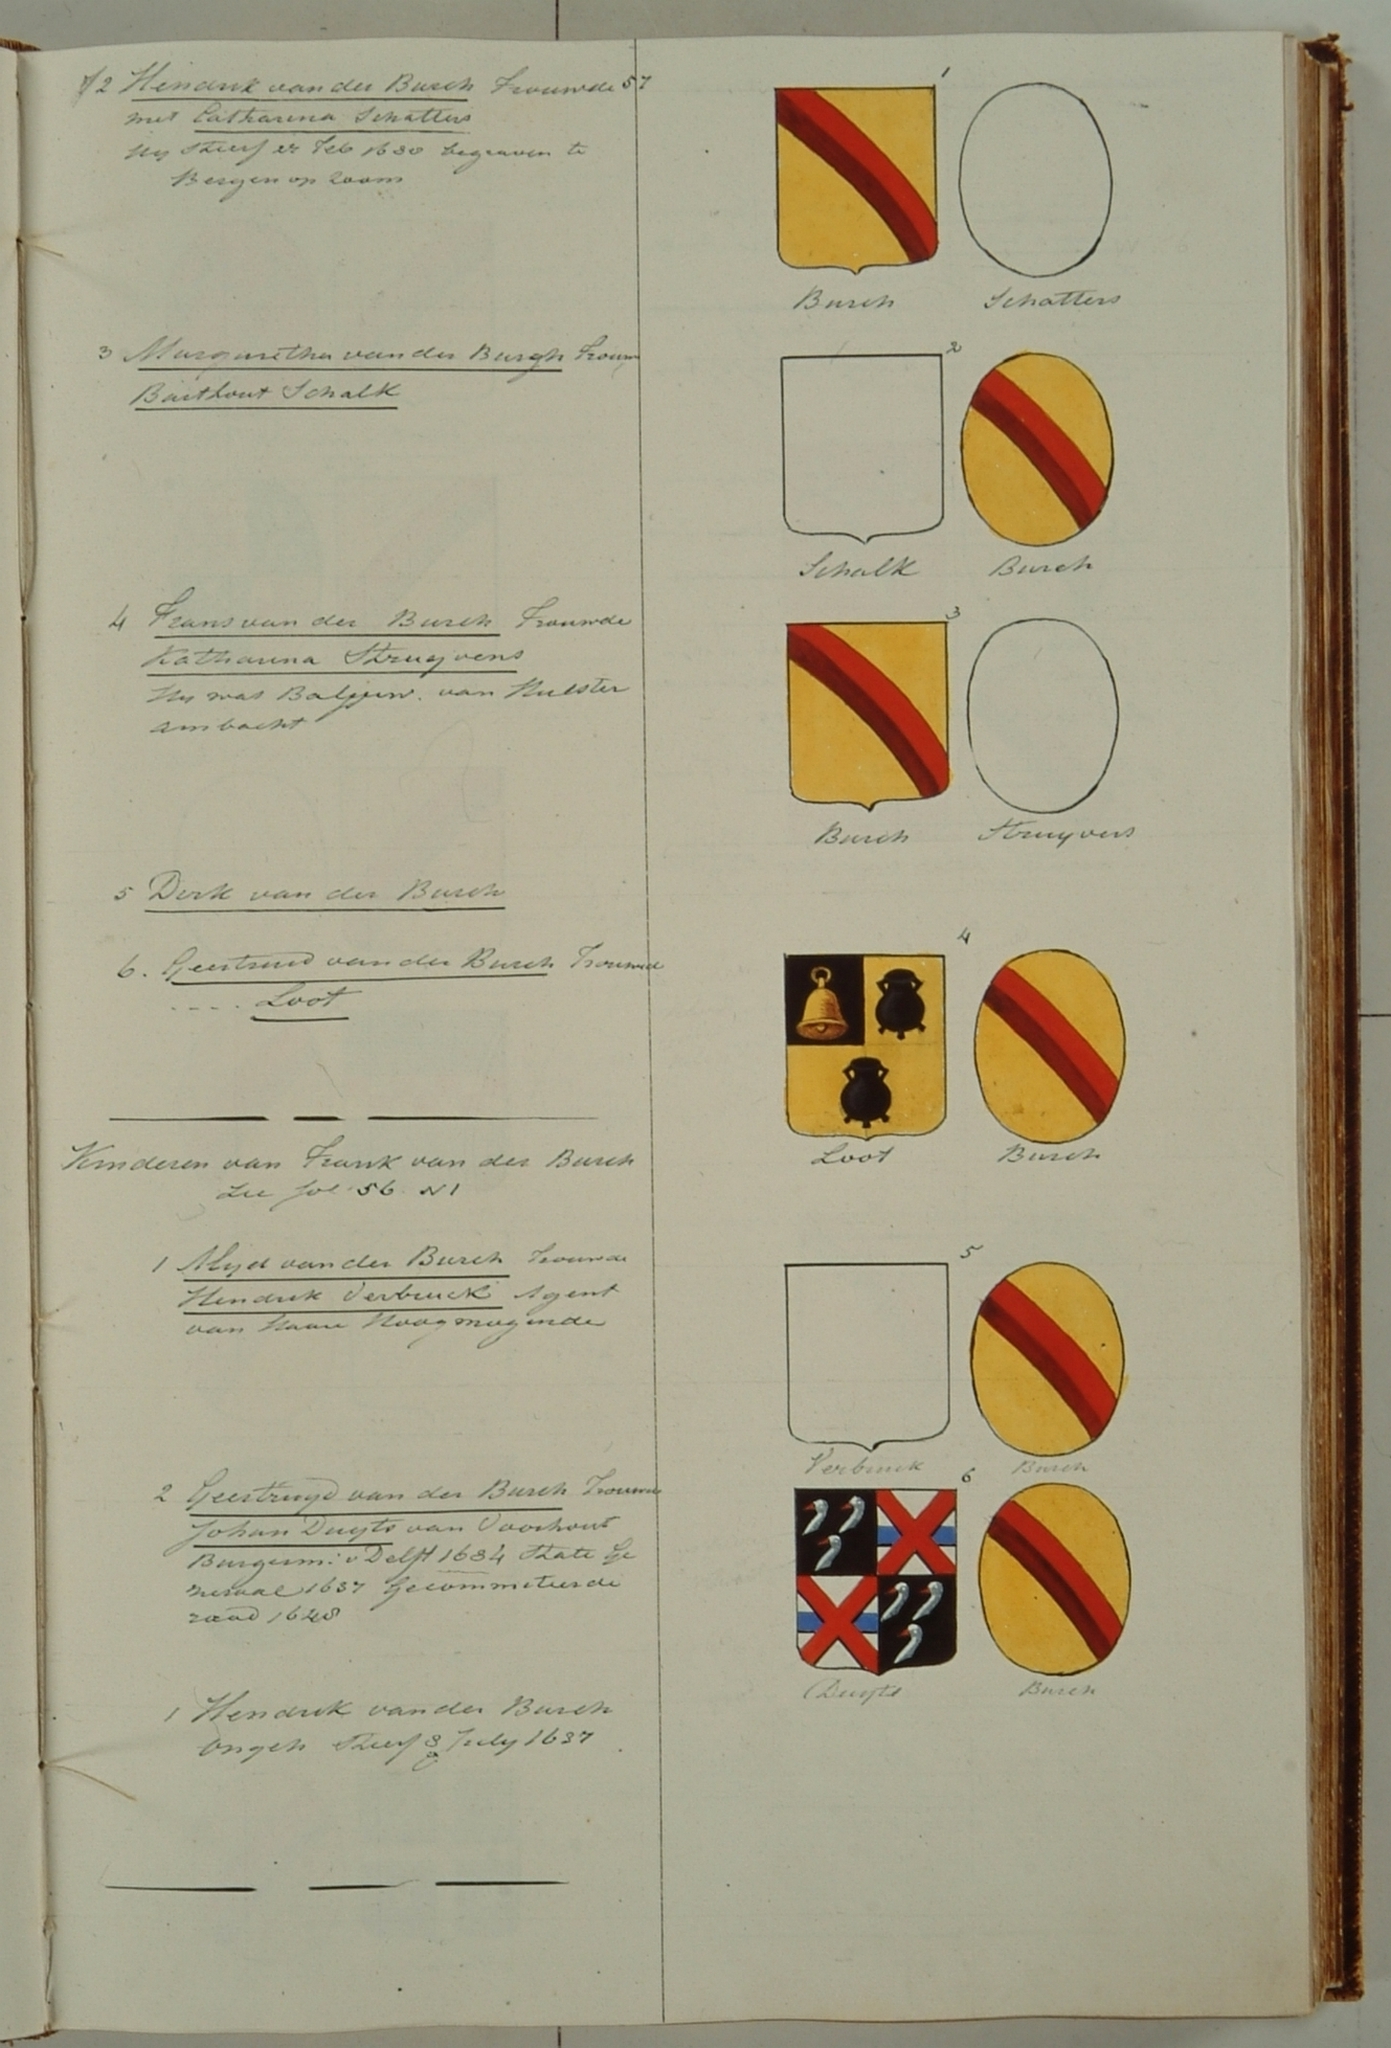 2 Hendrik van der Burch Trouwde 57
met Catharina Schatters
Hij Stierf Feb 1630 begraven te
Bergen op Zoom
1
Burch Schatters
3 Margaretha van der Burgh Trouw
Barthout Schalk
2
Schalk Burch
4 Frans van der Burch Trouwde
Katharina Struyvens
Hij was Baljuw. van Hulster
ambacht
3
Burch Struyvers
5 Derk van der Burch
6. Geertruid van der Burch Trouwde
.... Loot
4
Loot Burch
Kinderen van Frank van der Burch
Zie fol 56 N1
1 Alijd van der Burch Trouwde
Hendrik Verbruck Agent
van Haare Hoogmogende
5
Verbruck Burch
2 Geertruyd van der Burch Trouwde
Johan Duyts van Voorhout
Burgerm: v Delft 1634 State Ge
neraal 1637 Gecommiteerde
raad 1648
6
Duyts Burch
1 Hendrik van der Burch
ongeh Stierf 3 July 1637